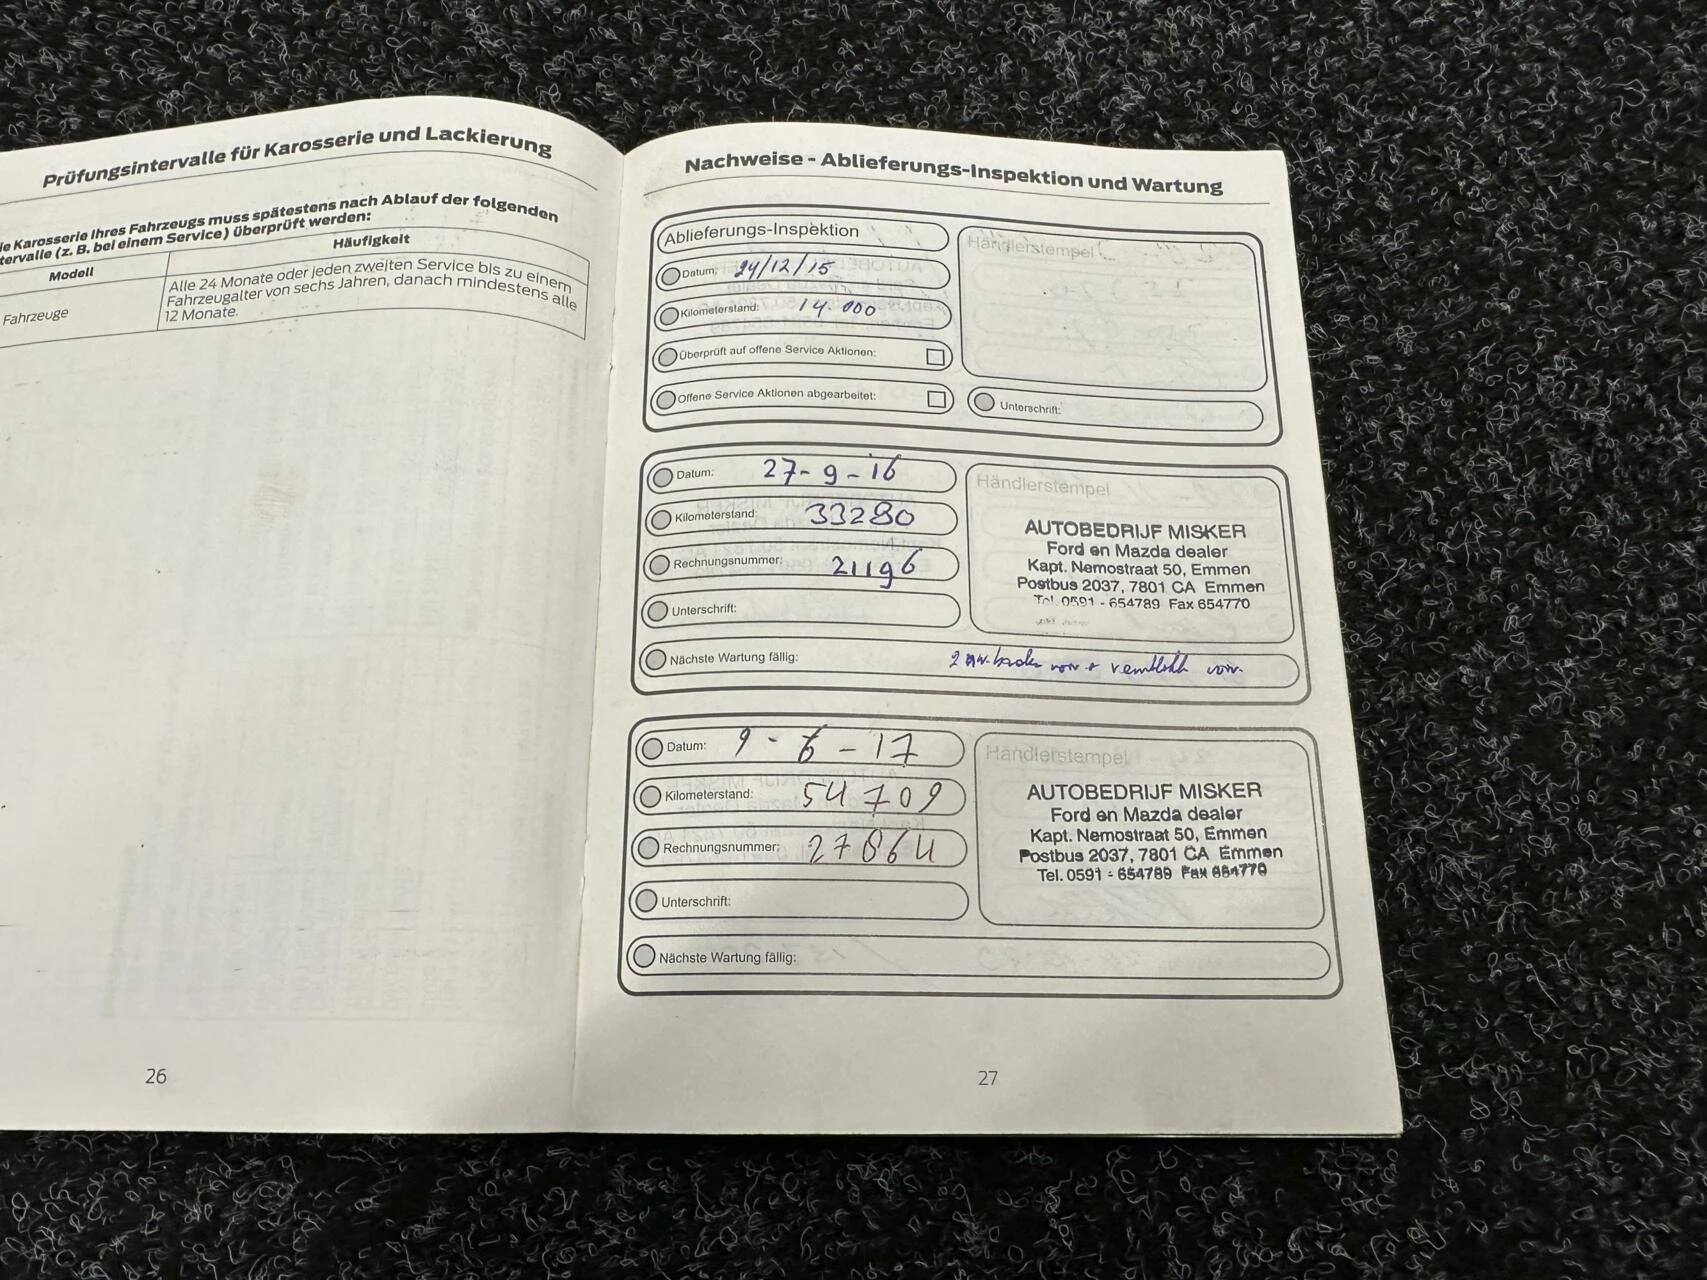 Prüfungsintervalle für Karosserie und Lackierung
ie Karosserie Ihres Fahrzeugs muss spätestens nach Ablauf der folgenden
tervalle (z. B. bei einem Service) überprüft werden:
Modell
Häufigkeit
Fahrzeuge
Alle 24 Monate oder jeden zweiten Service bis zu einem
Fahrzeugalter von sechs Jahren, danach mindestens alle
12 Monate.
26
Nachweise - Ablieferungs-Inspektion und Wartung
Ablieferungs-Inspektion
Händlerstempel
Datum: 24/12/15
Kilometerstand: 14.000
Überprüft auf offene Service Aktionen:
Offene Service Aktionen abgearbeitet:
Unterschrift:
Datum: 27-9-16
Kilometerstand: 33280
Rechnungsnummer: 21196
Unterschrift:
Händlerstempel
AUTOBEDRIJF MISKER
Ford en Mazda dealer
Kapt. Nemostraat 50, Emmen
Postbus 2037, 7801 CA Emmen
Tel. 0591 - 654789 Fax 654770
Nächste Wartung fällig:
Datum: 9-6-17
Kilometerstand: 54709
Rechnungsnummer: 27864
Unterschrift:
Händlerstempel
AUTOBEDRIJF MISKER
Ford en Mazda dealer
Kapt. Nemostraat 50, Emmen
Postbus 2037, 7801 CA Emmen
Tel. 0591 - 654789 Fax 654770
Nächste Wartung fällig:
27